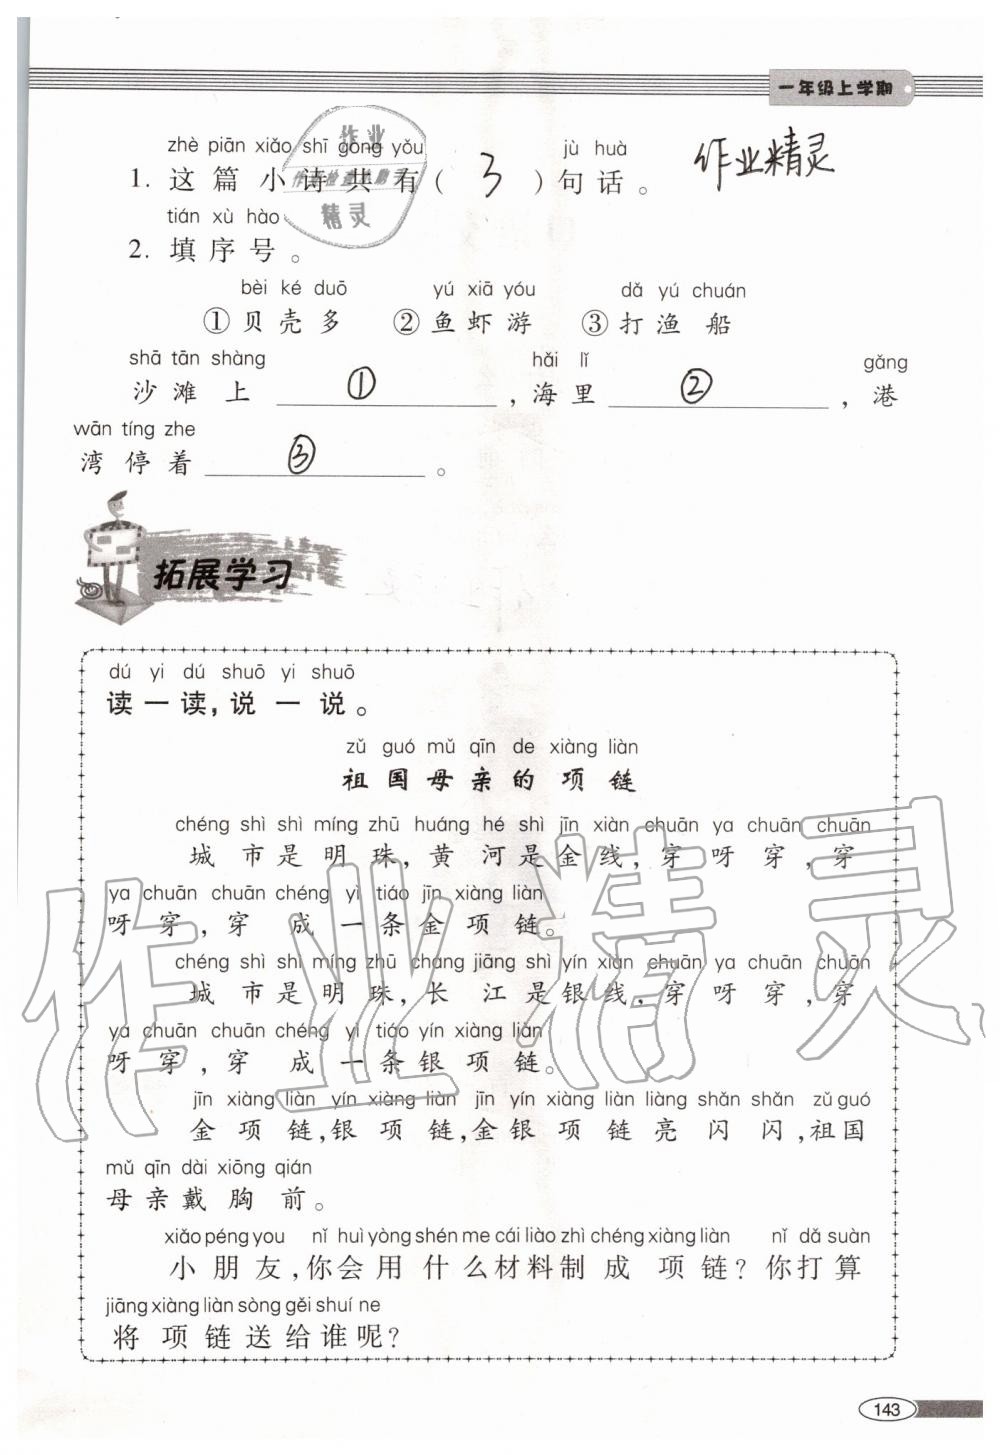 一年级上学期
zhè piān xiǎo shī gòng yǒu jù huà
1. 这篇小诗共有( 3 )句话。
作业精灵
作业
作业检查小助手
精灵
tián xù hào
2. 填序号。
bèi ké duō yú xiā yóu dǎ yú chuán
①贝壳多 ②鱼虾游 ③打渔船
shā tān shàng hǎi lǐ gǎng
沙滩上 ① ,海里 ② ,港
wān tíng zhe
湾停着 ③ 。
拓展学习
dú yi dú shuō yi shuō
读一读,说一说。
zǔ guó mǔ qīn de xiàng liàn
祖国母亲的项链
chéng shì shì míng zhū huáng hé shì jīn xiàn chuān ya chuān chuān
城市是明珠,黄河是金线,穿呀穿,穿
ya chuān chuān chéng yì tiáo jīn xiàng liàn
呀穿,穿成一条金项链。
chéng shì shì míng zhū cháng jiāng shì yín xiàn chuān ya chuān chuān
城市是明珠,长江是银线,穿呀穿,穿
ya chuān chuān chéng yì tiáo yín xiàng liàn
呀穿,穿成一条银项链。
jīn xiàng liàn yín xiàng liàn jīn yín xiàng liàn liàng shǎn shǎn zǔ guó
金项链,银项链,金银项链亮闪闪,祖国
mǔ qīn dài xiōng qián
母亲戴胸前。
xiǎo péng you nǐ huì yòng shén me cái liào zhì chéng xiàng liàn nǐ dǎ suàn
小朋友,你会用什么材料制成项链?你打算
jiāng xiàng liàn sòng gěi shuí ne
将项链送给谁呢?
作业精灵
143